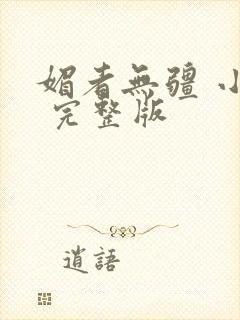 媚者無疆 小
完整版
逍語